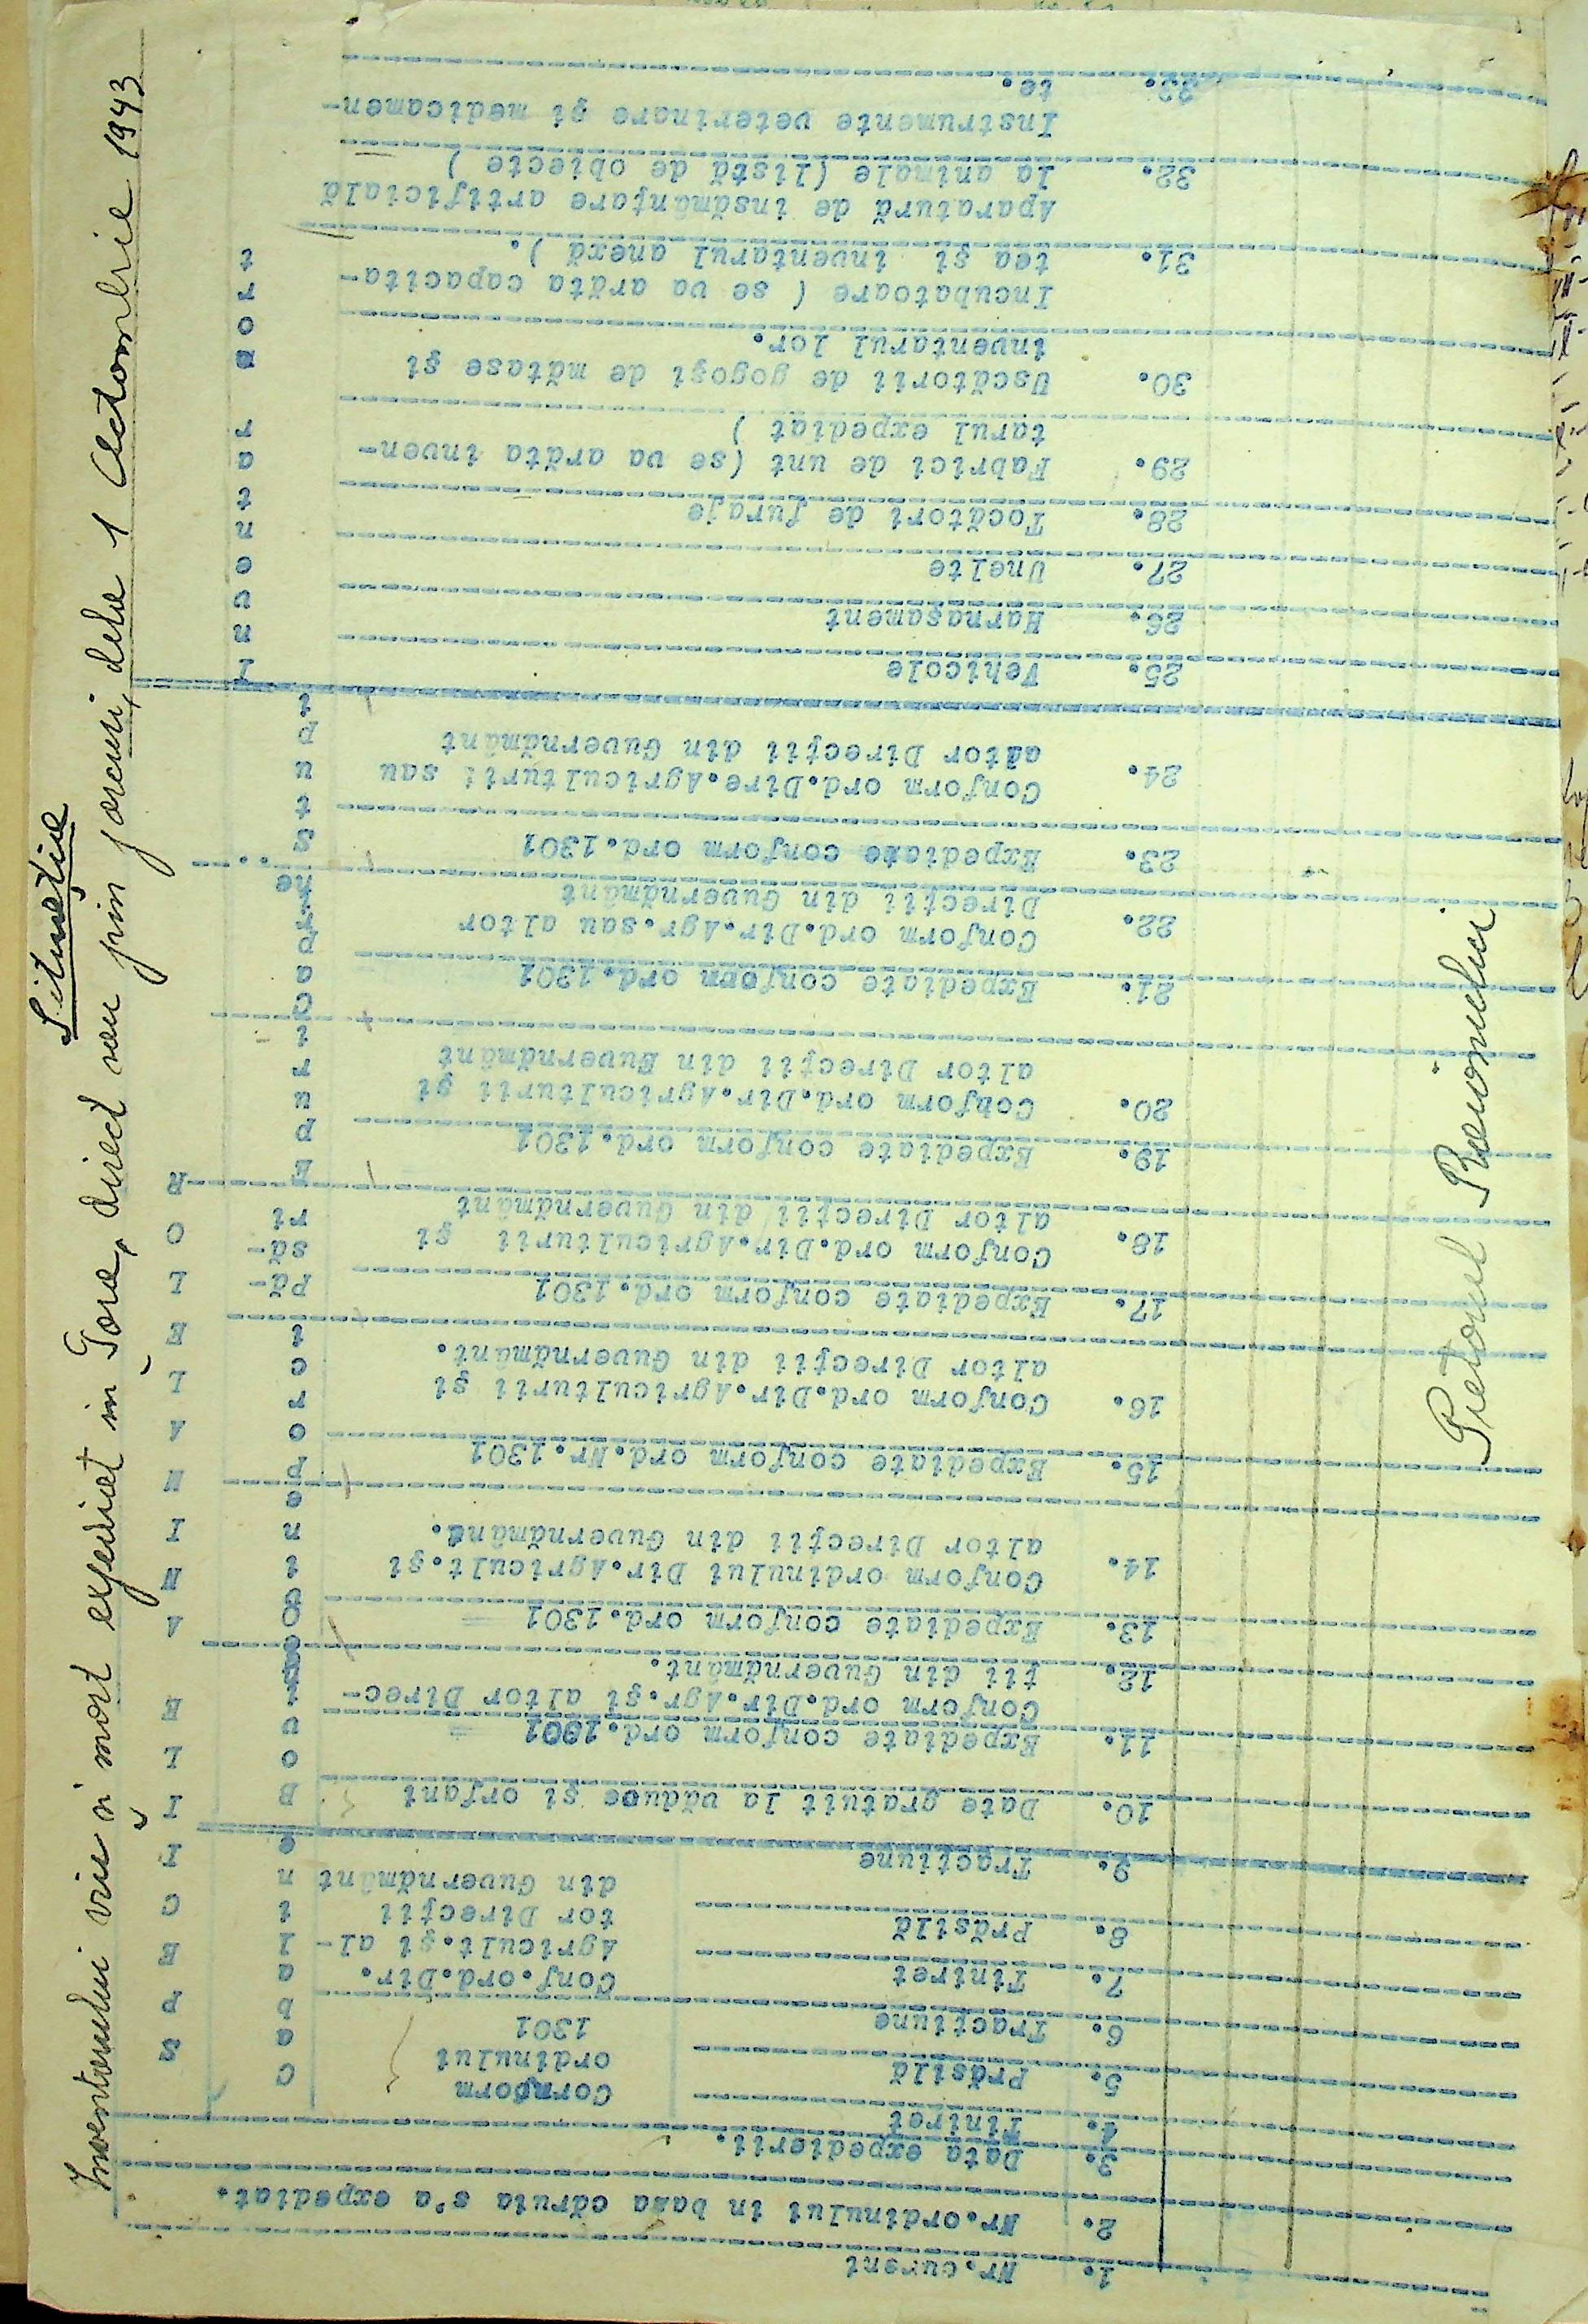 Situația
Inventarului viu și mort expediat în Țară, direct sau prin jocuri, dela 1 Octombrie 1943
1. Nr.curent
2. Nr.ordinului in baza căruia s'a expediat.
3. Data expedierii.
SPECIILE ANIMALELOR
Cabaline
Conform
ordinului
1301
4. Tineret
5. Prăsilă
6. Tracțiune
Conf.ord.Dir.
Agricult.și al-
tor Direcții
din Guvernământ
7. Tineret
8. Prăsilă
9. Tracțiune
Bovine
10. Date gratuit la văduve și orfani
11. Expediate conform ord.1301
12. Conform ord.Dir.Agr.și altor Direc-
ții din Guvernământ.
Ovine
13. Expediate conform ord.1301
14. Conform ordinului Dir.Agricult.și
altor Direcții din Guvernământ.
Porci
15. Expediate conform ord.Nr.1301
16. Conform ord.Dir.Agriculturii și
altor Direcții din Guvernământ.
Pă-
să-
ri
17. Expediate conform ord.1301
18. Conform ord.Dir.Agriculturii și
altor Direcții din Guvernământ
Epuri
19. Expediate conform ord.1301
20. Conform ord.Dir.Agriculturii și
altor Direcții din Guvernământ
Caprine
21. Expediate conform ord.1301
22. Conform ord.Dir.Agr.sau altor
Direcții din Guvernământ
Stupi
23. Expediate conform ord.1301
24. Conform ord.Dire.Agriculturii sau
altor Direcții din Guvernământ
Inventar mort
25. Vehicole
26. Harnașament
27. Unelte
28. Tocători de furaje
29. Fabrici de unt (se va arăta inven-
tarul expediat )
30. Uscătorii de gogoși de mătase și
inventarul lor.
31. Incubatoare ( se va arăta capacita-
tea și inventarul anexă ).
32. Aparatură de insămânțare artificială
la animale (listă de obiecte )
33. Instrumente veterinare și medicamen-
te.
Pretorul Raionului